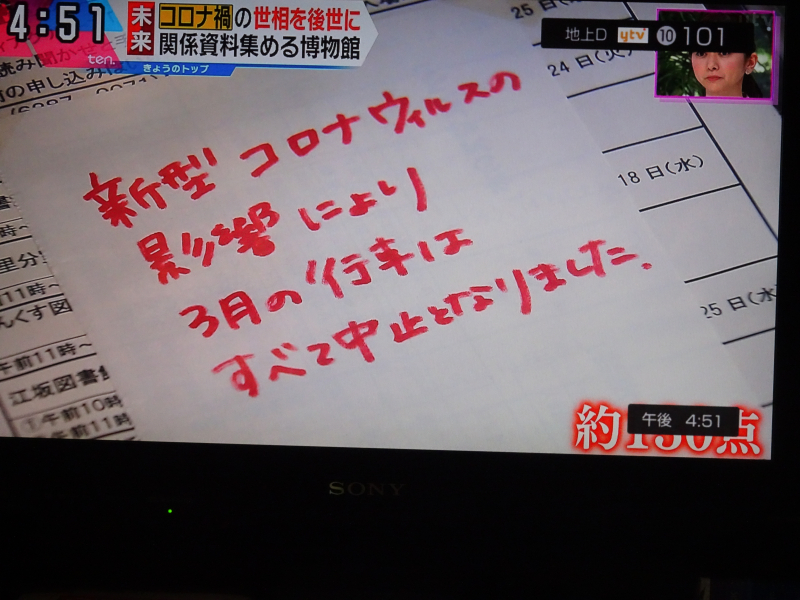 4:51
未来
コロナ禍の世相を後世に
関係資料集める博物館
ten.
きょうのトップ
地上D ytv 10 101
25日
24日(火)
18日(水)
25日(水
新型コロナウィルスの
影響により
3月の行事は
すべて中止となりました。
里分室
午前11時~
江坂図書館
①午前10時
午前11時
約130点
午後 4:51
SONY